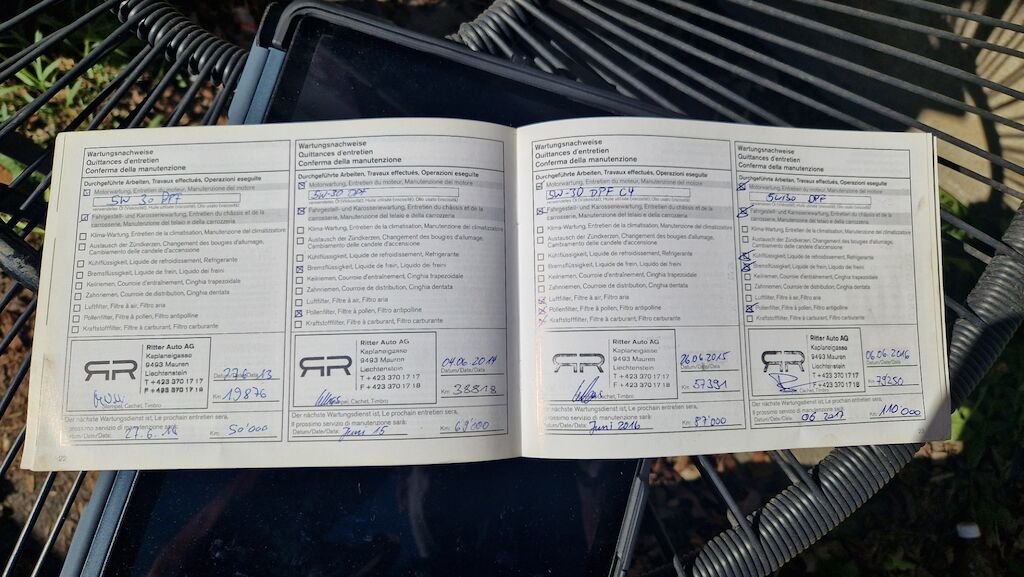 Wartungsnachweise
Quittances d'entretien
Conferma della manutenzione
Durchgeführte Arbeiten, Travaux effectués, Operazioni eseguite
Motorwartung, Entretien du moteur, Manutenzione del motore
5W 30 DPF
Fahrgestell- und Karosseriewartung, Entretien du châssis et de la
carrosserie, Manutenzione del telaio e della carrozzeria
Klima-Wartung, Entretien de la climatisation, Manutenzione del climatizzatore
Austausch der Zündkerzen, Changement des bougies d'allumage,
Cambiamento delle candele d'accensione
Kühlflüssigkeit, Liquide de refroidissement, Refrigerante
Bremsflüssigkeit, Liquide de frein, Liquido dei freini
Keilriemen, Courroie d'entraînement, Cinghia trapezoidale
Zahnriemen, Courroie de distribution, Cinghia dentata
Luftfilter, Filtre à air, Filtro aria
Pollenfilter, Filtre à pollen, Filtro antipolline
Kraftstofffilter, Filtre à carburant, Filtro carburante
RR
Ritter Auto AG
Kaplaneigasse
9493 Mauren
Liechtenstein
T +423 370 17 17
F +423 370 17 18
Datum/Date/Data: 27.6.13
Km: 19876
Stempel, Cachet, Timbro
Der nächste Wartungsdienst ist, Le prochain entretien sera,
Il prossimo servizio di manutenzione sarà:
Datum/Date/Data: 27.6.14 Km: 50'000
22
Wartungsnachweise
Quittances d'entretien
Conferma della manutenzione
Durchgeführte Arbeiten, Travaux effectués, Operazioni eseguite
Motorwartung, Entretien du moteur, Manutenzione del motore
5W-30 DPF
Fahrgestell- und Karosseriewartung, Entretien du châssis et de la
carrosserie, Manutenzione del telaio e della carrozzeria
Klima-Wartung, Entretien de la climatisation, Manutenzione del climatizzatore
Austausch der Zündkerzen, Changement des bougies d'allumage,
Cambiamento delle candele d'accensione
Kühlflüssigkeit, Liquide de refroidissement, Refrigerante
Bremsflüssigkeit, Liquide de frein, Liquido dei freini
Keilriemen, Courroie d'entraînement, Cinghia trapezoidale
Zahnriemen, Courroie de distribution, Cinghia dentata
Luftfilter, Filtre à air, Filtro aria
Pollenfilter, Filtre à pollen, Filtro antipolline
Kraftstofffilter, Filtre à carburant, Filtro carburante
RR
Ritter Auto AG
Kaplaneigasse
9493 Mauren
Liechtenstein
T +423 370 17 17
F +423 370 17 18
04.06.2014
Datum/Date/Data:
Km: 38518
Stempel, Cachet, Timbro
Der nächste Wartungsdienst ist, Le prochain entretien sera,
Il prossimo servizio di manutenzione sarà:
Datum/Date/Data: Juni 15 Km: 69'000
Wartungsnachweise
Quittances d'entretien
Conferma della manutenzione
Durchgeführte Arbeiten, Travaux effectués, Operazioni eseguite
Motorwartung, Entretien du moteur, Manutenzione del motore
5W-30 DPF C4
Fahrgestell- und Karosseriewartung, Entretien du châssis et de la
carrosserie, Manutenzione del telaio e della carrozzeria
Klima-Wartung, Entretien de la climatisation, Manutenzione del climatizzatore
Austausch der Zündkerzen, Changement des bougies d'allumage,
Cambiamento delle candele d'accensione
Kühlflüssigkeit, Liquide de refroidissement, Refrigerante
Bremsflüssigkeit, Liquide de frein, Liquido dei freini
Keilriemen, Courroie d'entraînement, Cinghia trapezoidale
Zahnriemen, Courroie de distribution, Cinghia dentata
Luftfilter, Filtre à air, Filtro aria
Pollenfilter, Filtre à pollen, Filtro antipolline
Kraftstofffilter, Filtre à carburant, Filtro carburante
RR
Ritter Auto AG
Kaplaneigasse
9493 Mauren
Liechtenstein
T +423 370 17 17
F +423 370 17 18
26.06.2015
Datum/Date/Data:
Km: 57391
Stempel, Cachet, Timbro
Der nächste Wartungsdienst ist, Le prochain entretien sera,
Il prossimo servizio di manutenzione sarà:
Datum/Date/Data: Juni 2016 Km: 87'000
Wartungsnachweise
Quittances d'entretien
Conferma della manutenzione
Durchgeführte Arbeiten, Travaux effectués, Operazioni eseguite
Motorwartung, Entretien du moteur, Manutenzione del motore
5W30 DPF
Fahrgestell- und Karosseriewartung, Entretien du châssis et de la
carrosserie, Manutenzione del telaio e della carrozzeria
Klima-Wartung, Entretien de la climatisation, Manutenzione del climatizzatore
Austausch der Zündkerzen, Changement des bougies d'allumage,
Cambiamento delle candele d'accensione
Kühlflüssigkeit, Liquide de refroidissement, Refrigerante
Bremsflüssigkeit, Liquide de frein, Liquido dei freini
Keilriemen, Courroie d'entraînement, Cinghia trapezoidale
Zahnriemen, Courroie de distribution, Cinghia dentata
Luftfilter, Filtre à air, Filtro aria
Pollenfilter, Filtre à pollen, Filtro antipolline
Kraftstofffilter, Filtre à carburant, Filtro carburante
RR
Ritter Auto AG
Kaplaneigasse
9493 Mauren
Liechtenstein
T +423 370 17 17
F +423 370 17 18
06.06.2016
Datum/Date/Data:
Km: 79250
Stempel, Cachet, Timbro
Der nächste Wartungsdienst ist, Le prochain entretien sera,
Il prossimo servizio di manutenzione sarà:
Datum/Date/Data: 06.2017 Km: 110 000
23